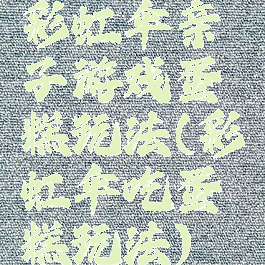 彩虹伞亲
子游戏蛋
糕玩法(彩
虹伞吃蛋
糕玩法)